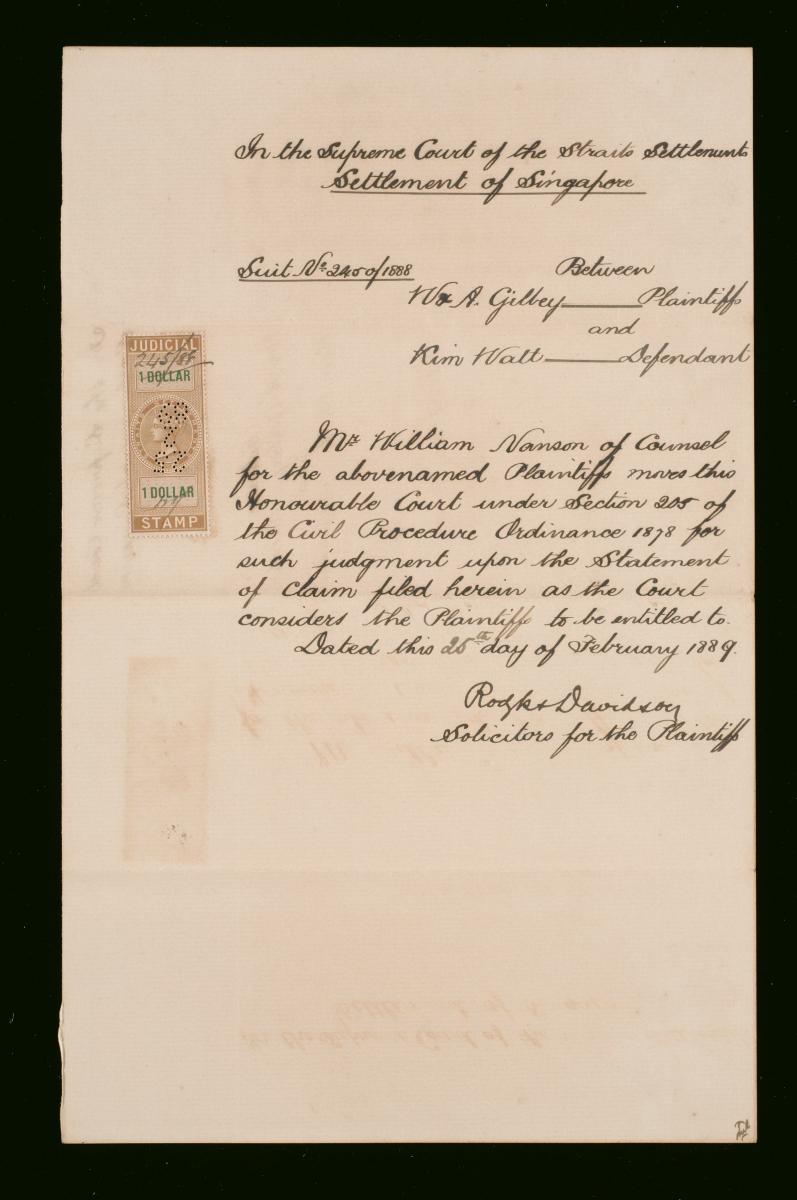 In the Supreme Court of the Straits Settlements
Settlement of Singapore
Suit No. 245 of 1888
Between
W & A. Gilbey Plaintiffs
and
Kim Watt Defendant
JUDICIAL
245/88
1 DOLLAR
1 DOLLAR
STAMP
Mr William Nanson of Counsel
for the abovenamed Plaintiffs moves this
Honourable Court under Section 205 of
the Civil Procedure Ordinance 1878 for
such judgment upon the Statement
of Claim filed herein as the Court
considers the Plaintiffs to be entitled to.
Dated this 25th day of February 1889.
Rodyk & Davidson
Solicitors for the Plaintiffs